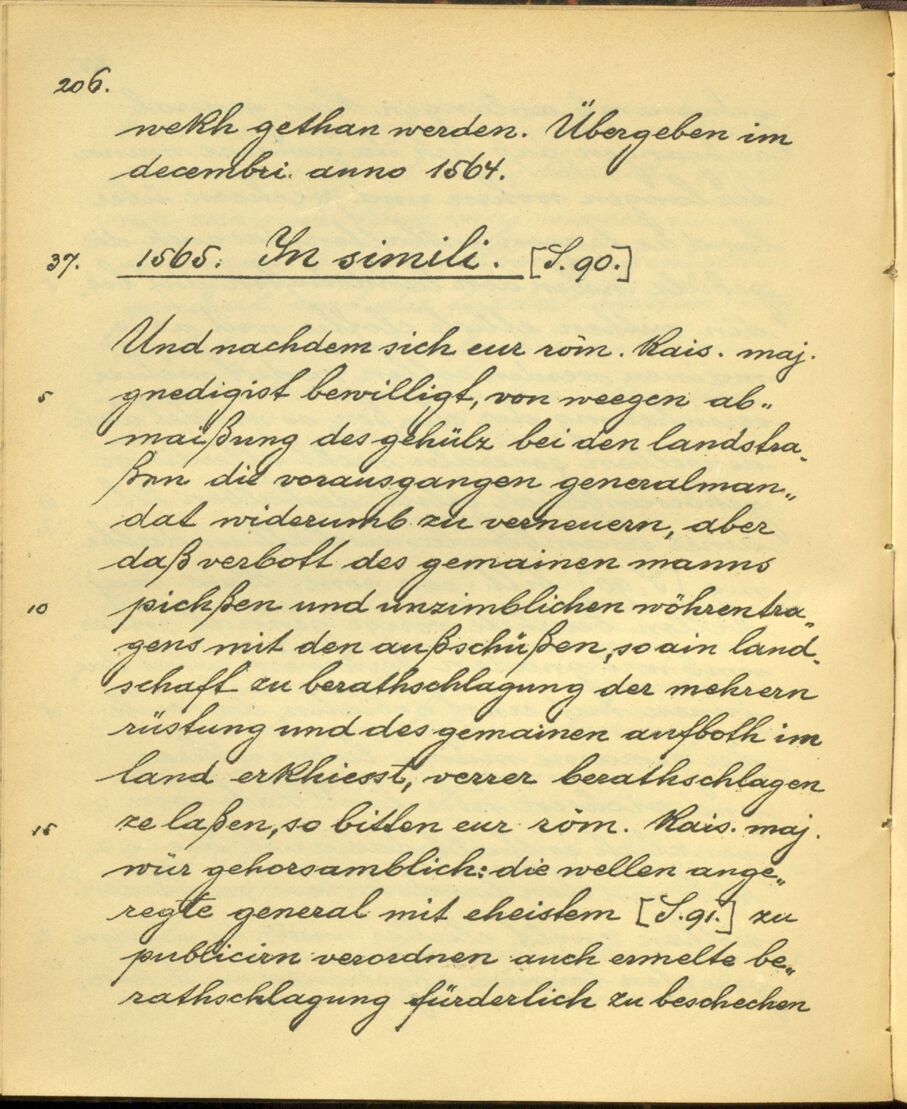 206.
wekh gethan werden. Übergeben im
decembri. anno 1564.
37. 1565. In simili. [S. 90.]
Und nachdem sich eur röm. Kais. maj.
5 gnedigist bewilligt, von weegen ab„
maißung des gehülz bei den landstra„
ßen die vorausgangen generalman„
dat widerumb zu verneuern, aber
daß verbott des gemainen manns
10 pichßen und unzimblichen wöhrentra„
gens mit den außschüßen, so ain land„
schaft zu berathschlagung der mehrern
rüstung und des gemainen aufboth im
land erkhiesst, verrer berathschlagen
15 ze laßen, so bitten eur röm. Kais. maj.
wür gehorsamblich: die wellen ange„
regte general mit eheistem [S. 91.] zu
publicirn verordnen auch ermelte be„
rathschlagung fürderlich zu beschechen